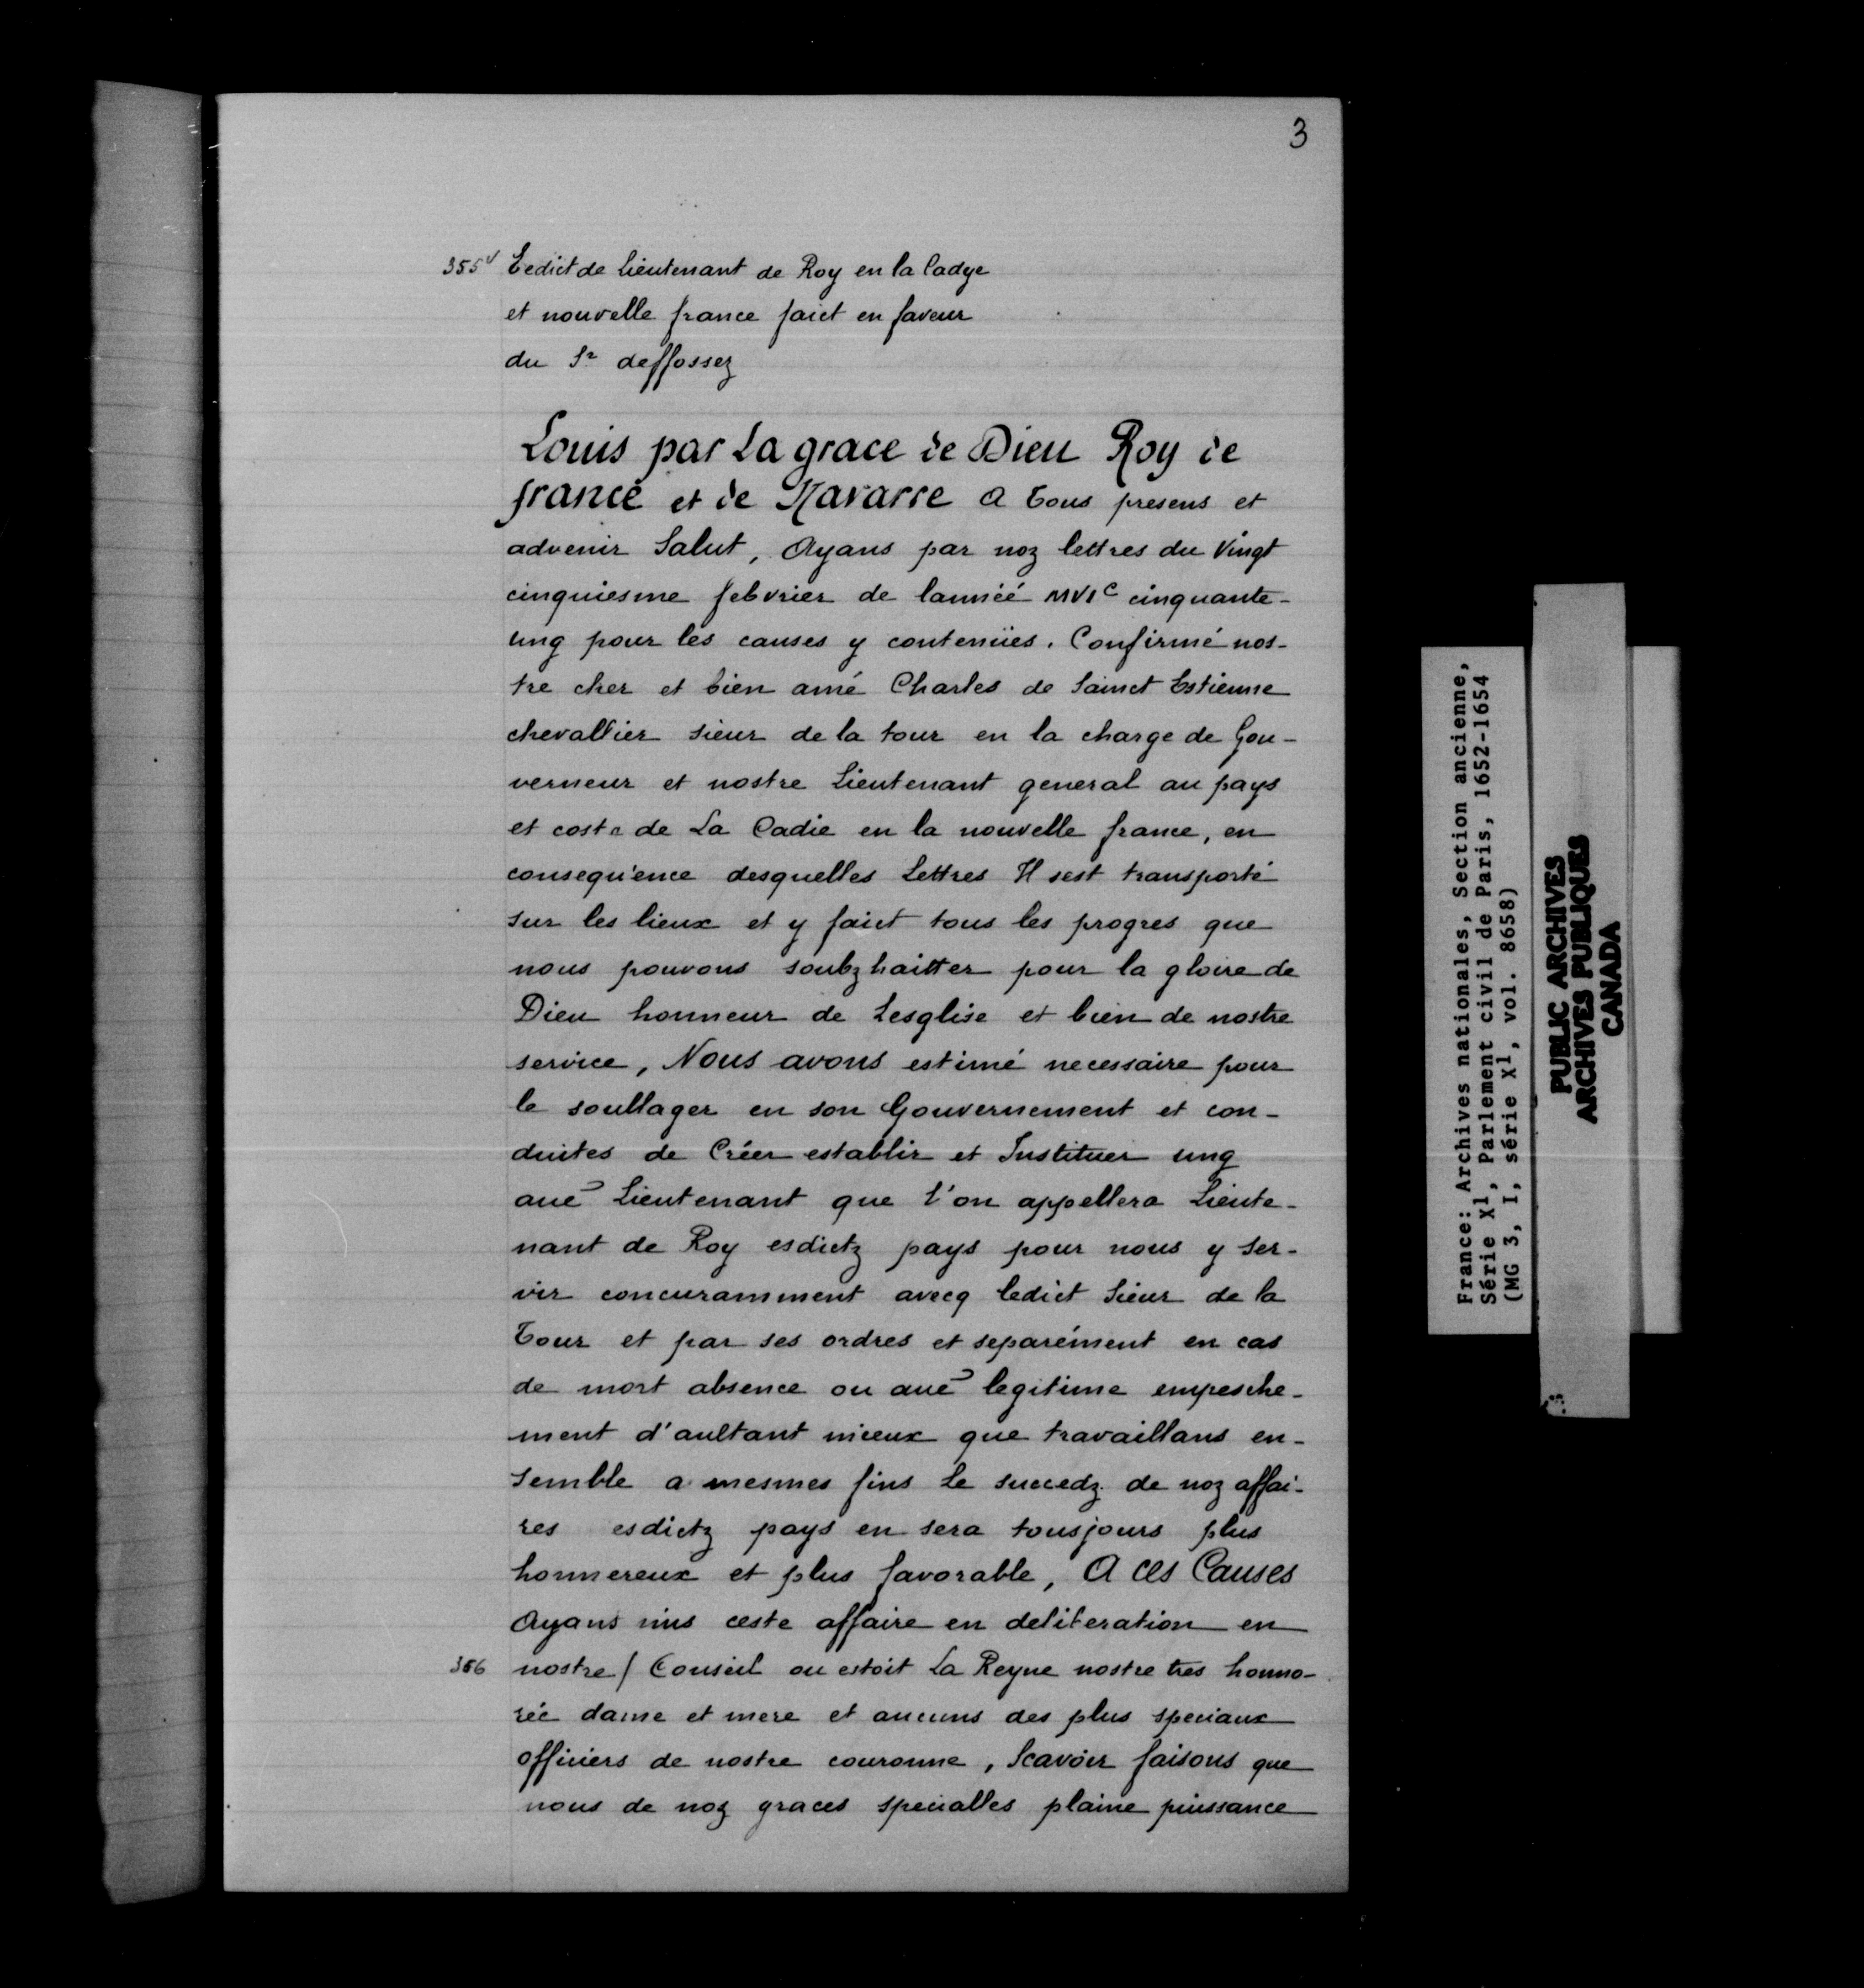 3
355v Eedict de Lieutenant de Roy en la Cadye
et nouvelle france faict en faveur
du Sr deffossez
Louis par La grace de Dieu Roy de
france et de Navarre A Tous presens et
advenir Salut, Ayans par noz lettres du Vingt
cinquiesme febvrier de lannéé MVIC cinquante-
ung pour les causes y contenües. Confirmé nos-
tre cher et bien amé Charles de Sainct Estienne
chevallier sieur de la tour en la charge de Gou-
verneur et nostre Lieutenant general au pays
et coste de La Cadie en la nouvelle france, en
consequ'ence desquelles Lettres Il sest transporté
sur les lieux et y faict tous les progres que
nous pouvons soubzhaitter pour la gloire de
Dieu honneur de Lesglise et bien de nostre
service, Nous avons estimé necessaire pour
le soullager en son Gouvernement et con-
duites de Créer establir et Instituer ung
aue Lieutenant que l'on appellera Lieute-
nant de Roy esdictz pays pour nous y ser-
vir concuramment avecq ledict Sieur de la
Tour et par ses ordres et separément en cas
de mort absence ou aue legitime empesche-
ment d'aultant mieux que travaillans en-
semble a mesmes fins Le succedz de noz affai-
res esdictz pays en sera tousjours plus
honnereux et plus favorable, A ces Causes
Ayans mis ceste affaire en deliberation en
356 nostre / Conseil ou estoit La Reyne nostre tres honno-
rée dame et mere et aucuns des plus speciaux
officiers de nostre couronne, Scavoir faisons que
nous de noz graces specialles plaine puissance
France: Archives nationales, Section ancienne,
Série X1, Parlement civil de Paris, 1652-1654
(MG 3, I, série X1, vol. 8658)
PUBLIC ARCHIVES
ARCHIVES PUBLIQUES
CANADA